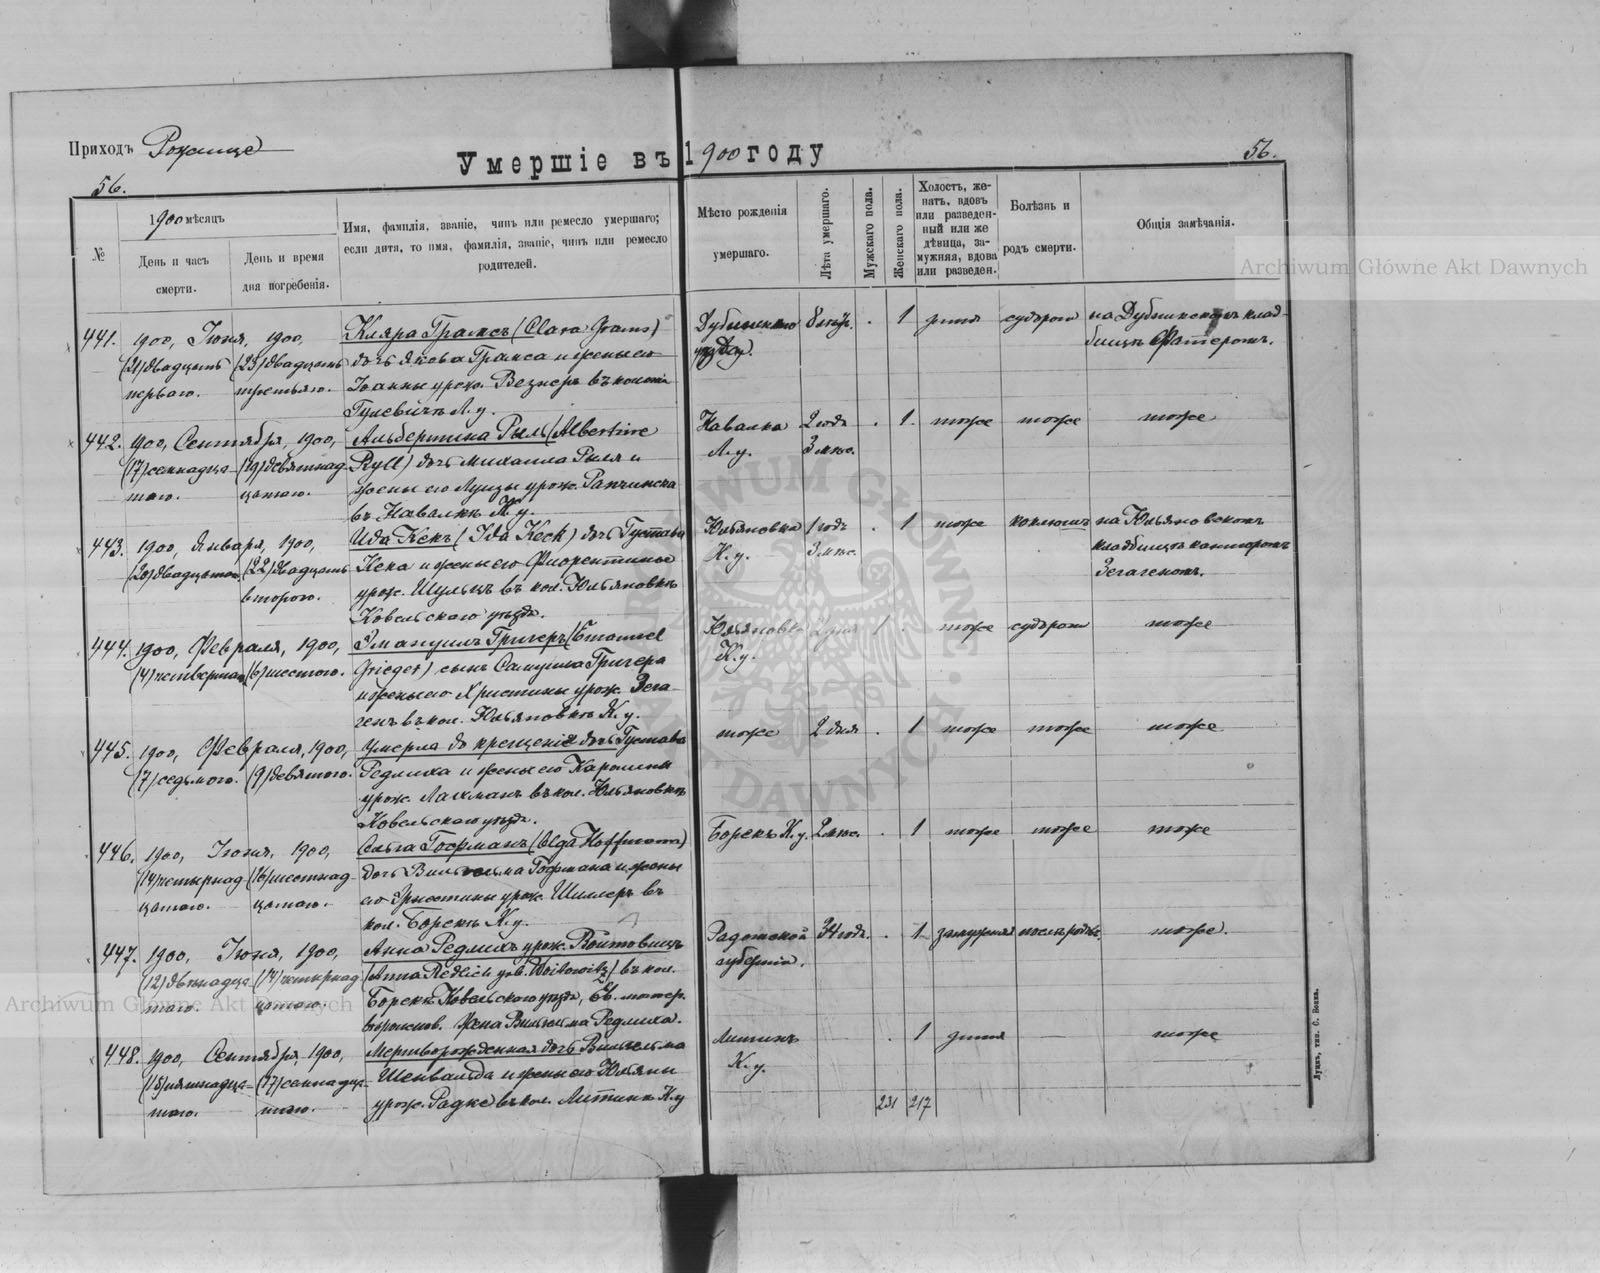 Приходъ Рожище
Умершіе въ 1900 году
56.
56.
№
1900 мѣсяцъ
День и часъ смерти.
День и время дня погребенія.
Имя, фамилія, званіе, чинъ или ремесло умершаго;
если дитя, то имя, фамилія, званіе, чинъ или ремесло
родителей.
Мѣсто рожденія
умершаго.
Лѣта умершаго.
Мужскаго пола.
Женскаго пола.
Холостъ, же-
натъ, вдовъ
или разведен-
ный или же
дѣвица, за-
мужняя, вдова
или разведен.
Болѣзнь и
родъ смерти.
Общія замѣчанія.
441. 1900, Іюня, 1900, Клара Грамсъ (Clara Grams) 8 1 дитя судороги на Дубинскомъ клад-
(21) двадцать (23) двадцать дочь Якова Грамса и жены его
перваго. третьяго. Іоанны урож. Везнеръ въ колоніи
Гулевичъ Л. у.
442. 1900, Сентября, 1900, Альбертина Рыль (Albertine Навалка 2 года 1. тоже тоже тоже
(17) семнадца- (19) девятнад- Ryll) дочь Михаила Рыля и Л. у. 3 мѣс.
таго. цатаго. жены его Луизы урож.
въ Навалкѣ Л. у.
443. 1900, Января, 1900, Ида Кекъ (Ida Keck) дочь Густава Юльяновка 1 годъ 1 тоже коклюшъ на Юльяновскомъ
(20) двадцатаго (22) двадцать Кека и жены его Флорентины К. у. 3 мѣс. кладбищѣ канторомъ
втораго. урож. Шульцъ въ кол. Юльяновкѣ Зегагеномъ.
Ковельскаго уѣзда.
444. 1900, Февраля, 1900, Эмануилъ Григеръ (Emanuel Юльяновка 2 дня 1 тоже судороги тоже
(4) четвертаго (6) шестого. Grieger) сынъ Самуила Григера К. у.
и жены его Христины урож. Зега-
генъ въ кол. Юльяновкѣ К. у.
445. 1900, Февраля, 1900, Умерла до крещенія дочь Густава тоже 2 дня 1 тоже тоже тоже
(7) седьмого. (9) девятого. Редлиха и жены его Каролины
урож. Лахманъ въ кол. Юльяновкѣ
Ковельскаго уѣзда.
446. 1900, Іюня, 1900, Ольга Гофманъ (Olga Hoffmann) Борекъ К. у. 2 мѣс. 1 тоже тоже тоже
(14) четырнад- (16) шестнад- дочь Вильгельма Гофмана и жены
цатаго. цатаго. его Эрнестины урож. Шиллеръ въ
кол. Борекъ К. у.
447. 1900, Іюня, 1900, Анна Редлихъ урож. Войтовицъ Радомской 34 года. 1 замужняя послѣ родовъ. тоже.
(12) двѣнадца- (14) четырнад- (Anna Redlich geb. Woitowitz) въ кол. губерніи.
таго. цатаго. Борекъ Ковельскаго уѣзда, Ев. лютер.
вѣроисповѣд. Жена Вильгельма Редлиха.
448. 1900, Сентября, 1900, Мертворожденная дочь Вильгельма Литинъ 1 дитя тоже
(15) пятнадца- (17) семнадца- Шенвальда и жены его Юльяны К. у.
таго. таго. урож. Радке въ кол. Литинъ К. у
231 217
Луцкъ, тип. С. Бокка.
Archiwum Główne Akt Dawnych
Archiwum Główne Akt Dawnych
ARCHIWUM GŁÓWNE AKT DAWNYCH